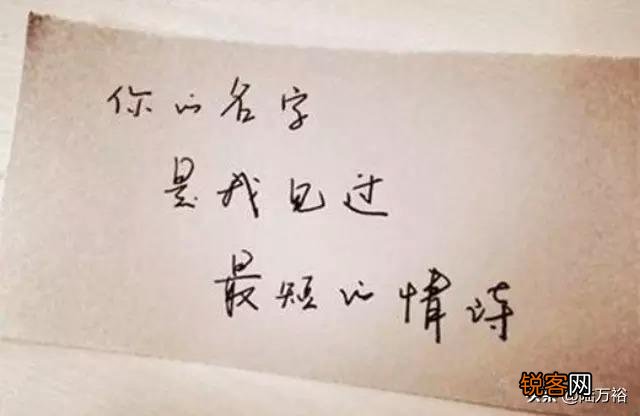 你的名字
是我见过
最短的情诗
锐客网
头条 @陆万裕